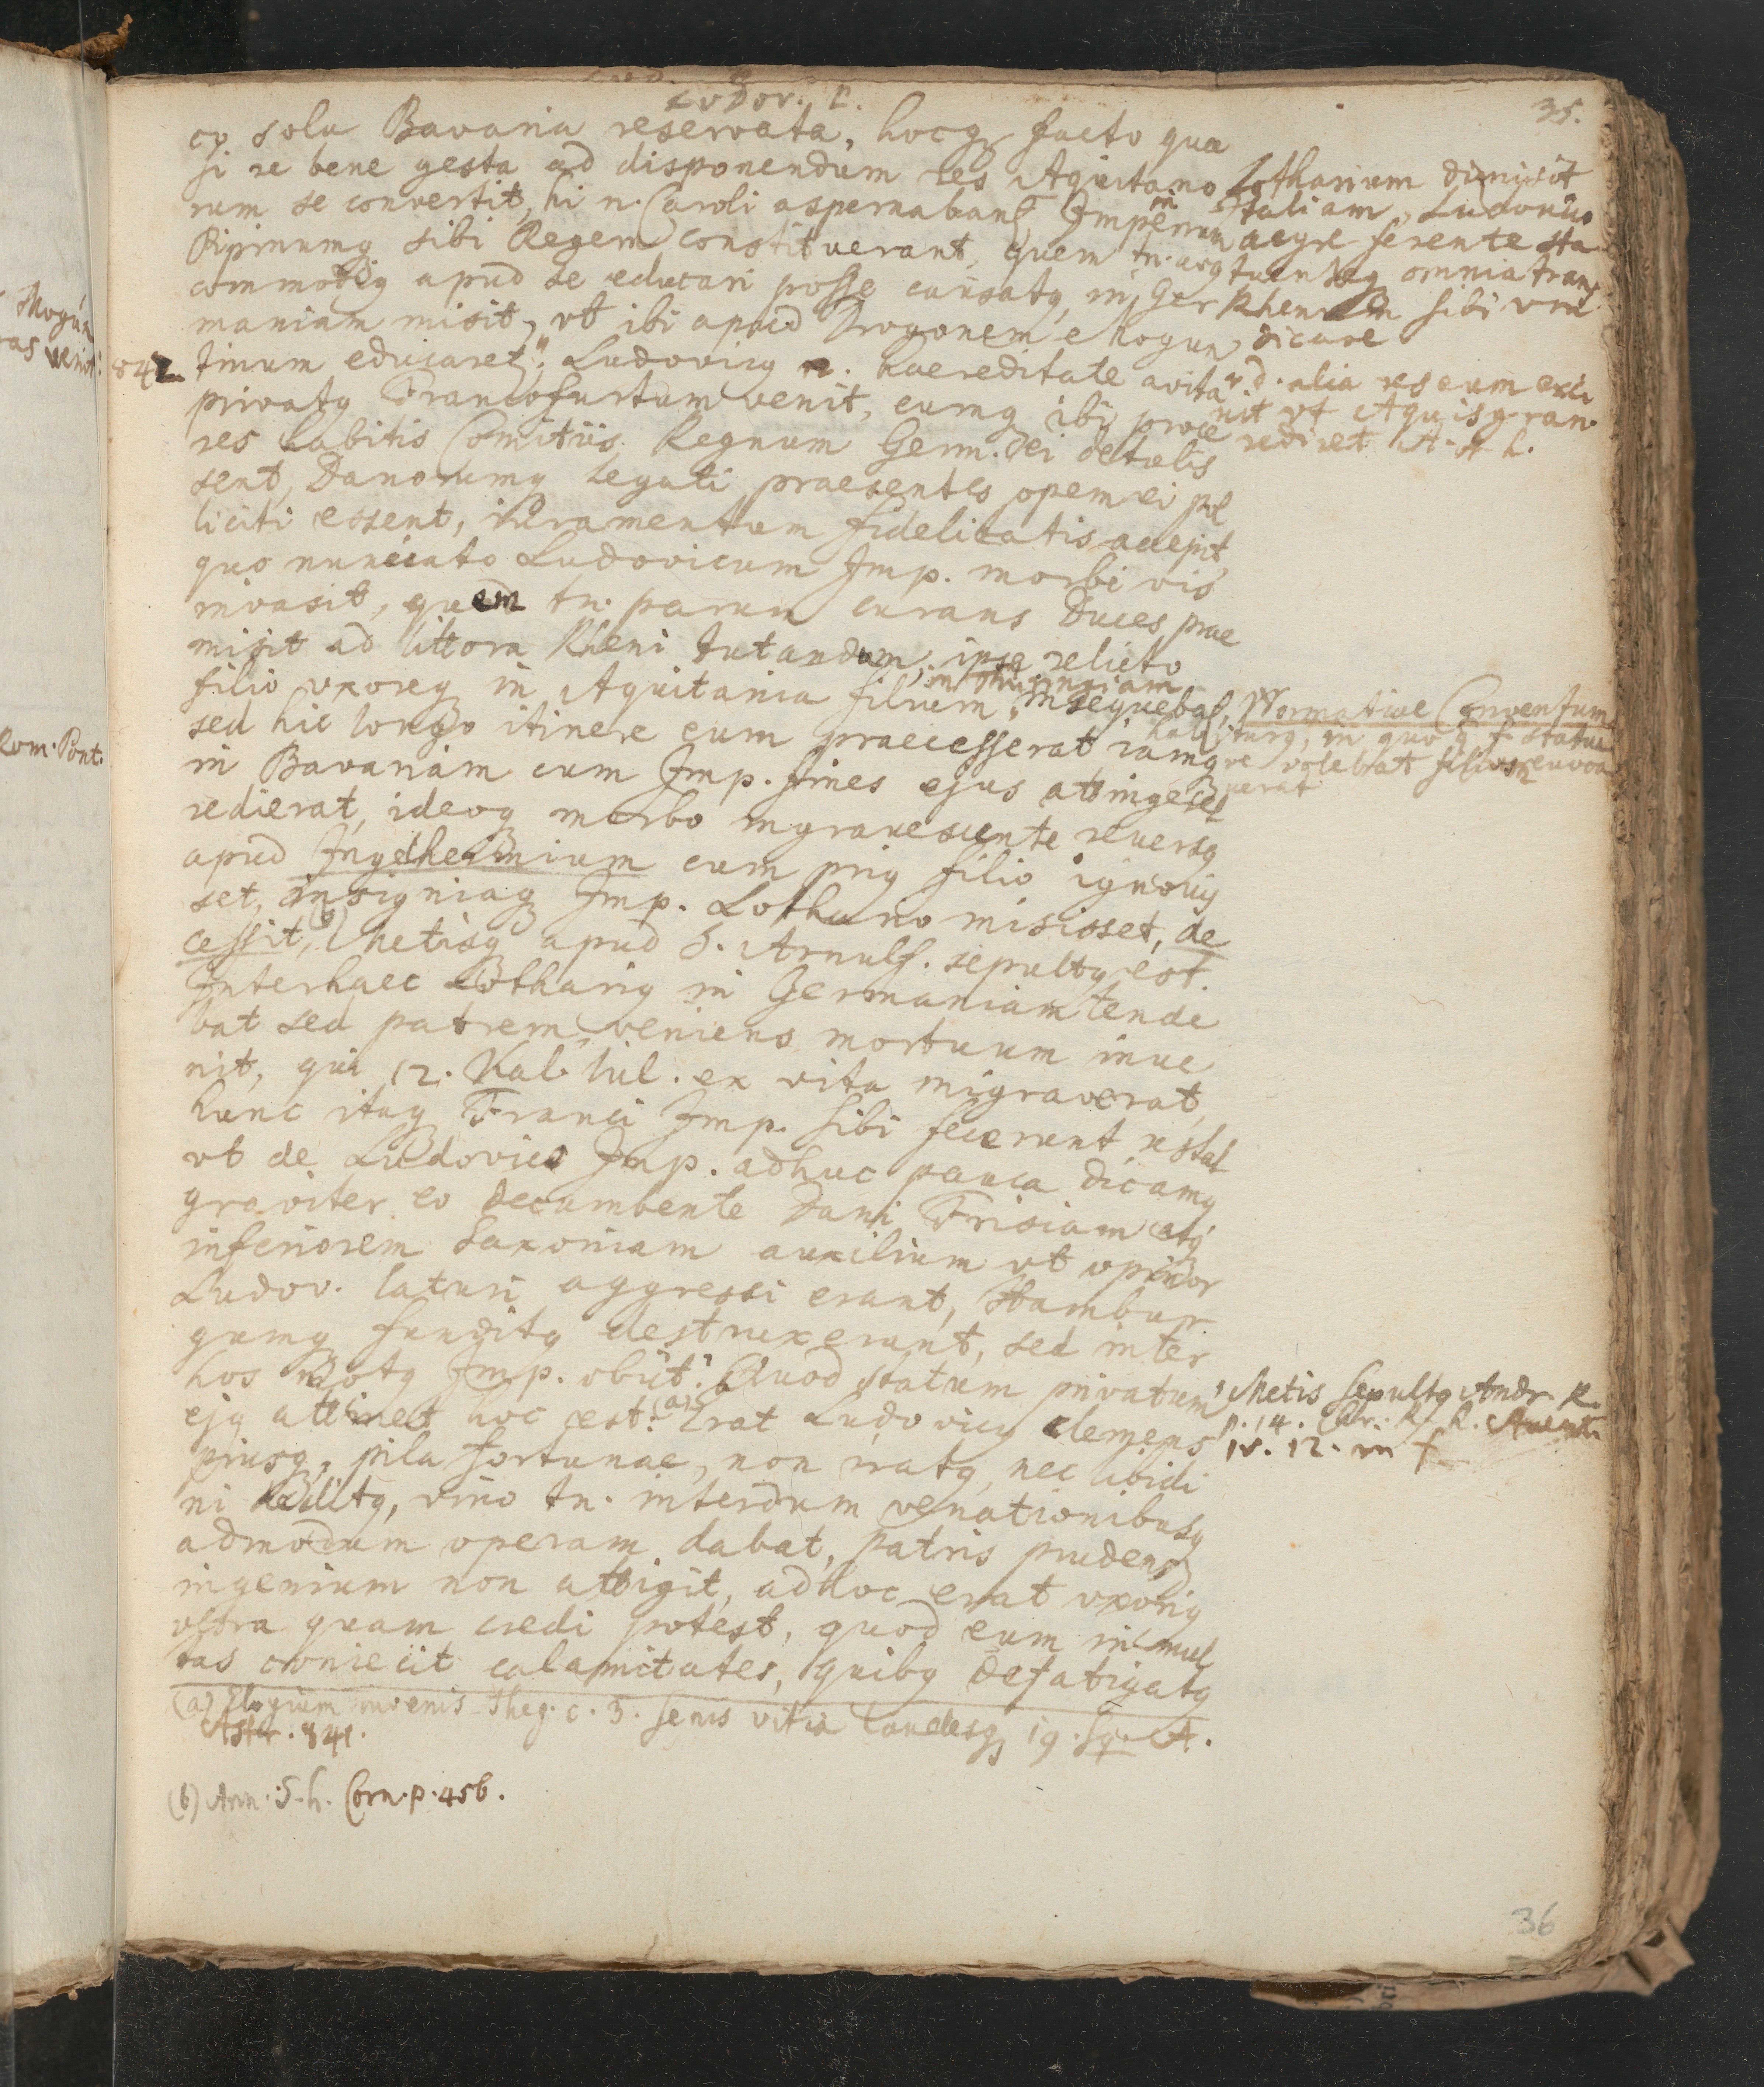 Ludov. P.
35.
co sola Bavaria reservata, hocq facto qua
si re bene gesta ad disponendum res Aquitano
rum se convertit, hi n. Caroli aspernabant Imperium
Pipinumq sibi Regem constituerant, quem tn.
commodiq apud se educari posse causatq, in Ger
maniam misit, vt ibi apud Drogonem Mogun
842 tinum educaret, Ludovicq n. haereditate avita
privatq Francofurtum venit, eumq ibi proce
res habitis Comitiis Regnum Germ. ei detulis
sent, Danorumq legati praesentes opem ei pol
liciti essent, iuramentum fidelitatis accepit,
quo nunciato Ludovicum Imp. morbi vis
invasit, quem tn. parum curans Duces prae
misit ad littora Rheni tutandum, ipse relicto
filio vxoreq in Aquitania filium in Thuringiam insequebat,
sed hic longo itinere eum praecesserat iamq
in Bavariam cum Imp. fines ejus attingeret
redierat, ideoq morbo ingravescente reversq
apud Ingelheimium cum priq filio ignovis
set, insigniaq Imp. Lothario misisset, de
cessit, (b) Metisq apud S. Arnulf. sepultq est.
Interhaec Lothariq in Germaniam tende
bat sed patrem veniens mortuum inve
nit, qui 12. Kal. Iul. ex vita migraverat,
hunc itaq Franci Imp. sibi fecerunt restat
vt de Ludovico Imp. adhuc pauca dicamq
graviter eo decumbente Dani Frisiam atq
inferiorem Saxoniam auxilium vt
Ludov. laturi aggressi erant, Hambur
gumq funditq destruxerant, sed inter
hos motq Imp. obiit. Quod statum privatum
ejq attinet hoc est. (a) Erat Ludovicq clemens
piusq, pila fortunae, non iratq, nec libidi
ni deditq, vino tn. interdum venationibusq
admodum operam dabat, patris prudens
ingenium non attigit, adhoc erat vxoriq
vltra quam credi potest, quod eum in mul
tas coniecit calamitates, quibq defatigatq
(a) Elogium iuvenis Theg. c. 3. senis vitia laudesq 19. sq. A.
Astr. 841.
(b) Ann. S. h. Corn. p. 456.
Lotharium dimisit
in Italiam, Ludovico
aegre ferente sta
tuenteq omnia trans
Rhenum sibi vin
dicare
v. d. alia res eum exci
vit vt Aquisgran.
rediret A. A h.
Wormatiae Conventum
habiturq, in quo q. f. statue
re volebat filium euoca
verat
Metis sepultq Andr. R.
p. 14. Chr. R. h. Auent.
IV. 12. in f.
36